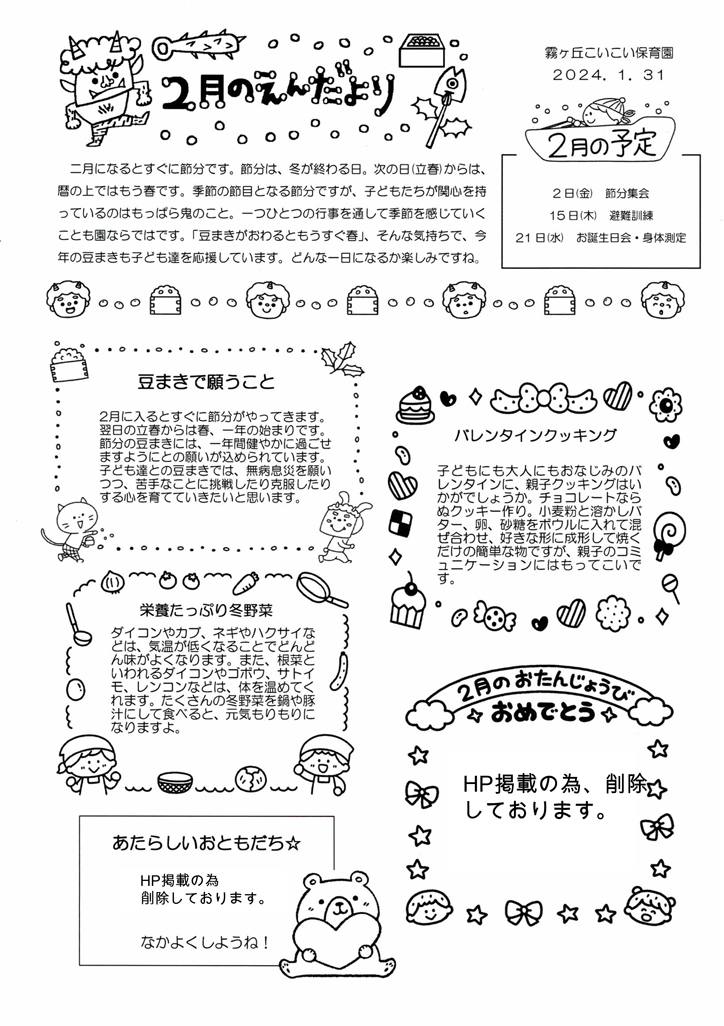 2月のえんだより
霧ヶ丘こいこい保育園
2024．1．31
二月になるとすぐに節分です。節分は、冬が終わる日。次の日(立春)からは、
暦の上ではもう春です。季節の節目となる節分ですが、子どもたちが関心を持
っているのはもっぱら鬼のこと。一つひとつの行事を通して季節を感じていく
ことも園ならではです。「豆まきがおわるともうすぐ春」、そんな気持ちで、今
年の豆まきも子ども達を応援しています。どんな一日になるか楽しみですね。
2月の予定
2日(金)　節分集会
15日(木)　避難訓練
21日(水)　お誕生日会・身体測定
豆まきで願うこと
2月に入るとすぐに節分がやってきます。
翌日の立春からは春、一年の始まりです。
節分の豆まきには、一年間健やかに過ごせ
ますようにとの願いが込められています。
子ども達との豆まきでは、無病息災を願い
つつ、苦手なことに挑戦したり克服したり
する心を育てていきたいと思います。
バレンタインクッキング
子どもにも大人にもおなじみのバ
レンタインに、親子クッキングはい
かがでしょうか。チョコレートなら
ぬクッキー作り。小麦粉と溶かしバ
ター、卵、砂糖をボウルに入れて混
ぜ合わせ、好きな形に成形して焼く
だけの簡単な物ですが、親子のコミ
ュニケーションにはもってこいで
す。
栄養たっぷり冬野菜
ダイコンやカブ、ネギやハクサイな
どは、気温が低くなることでどんど
ん味がよくなります。また、根菜と
いわれるダイコンやゴボウ、サトイ
モ、レンコンなどは、体を温めてく
れます。たくさんの冬野菜を鍋や豚
汁にして食べると、元気もりもりに
なりますよ。
2月のおたんじょうび
おめでとう
HP掲載の為、削除
しております。
あたらしいおともだち☆
HP掲載の為
削除しております。
なかよくしようね！